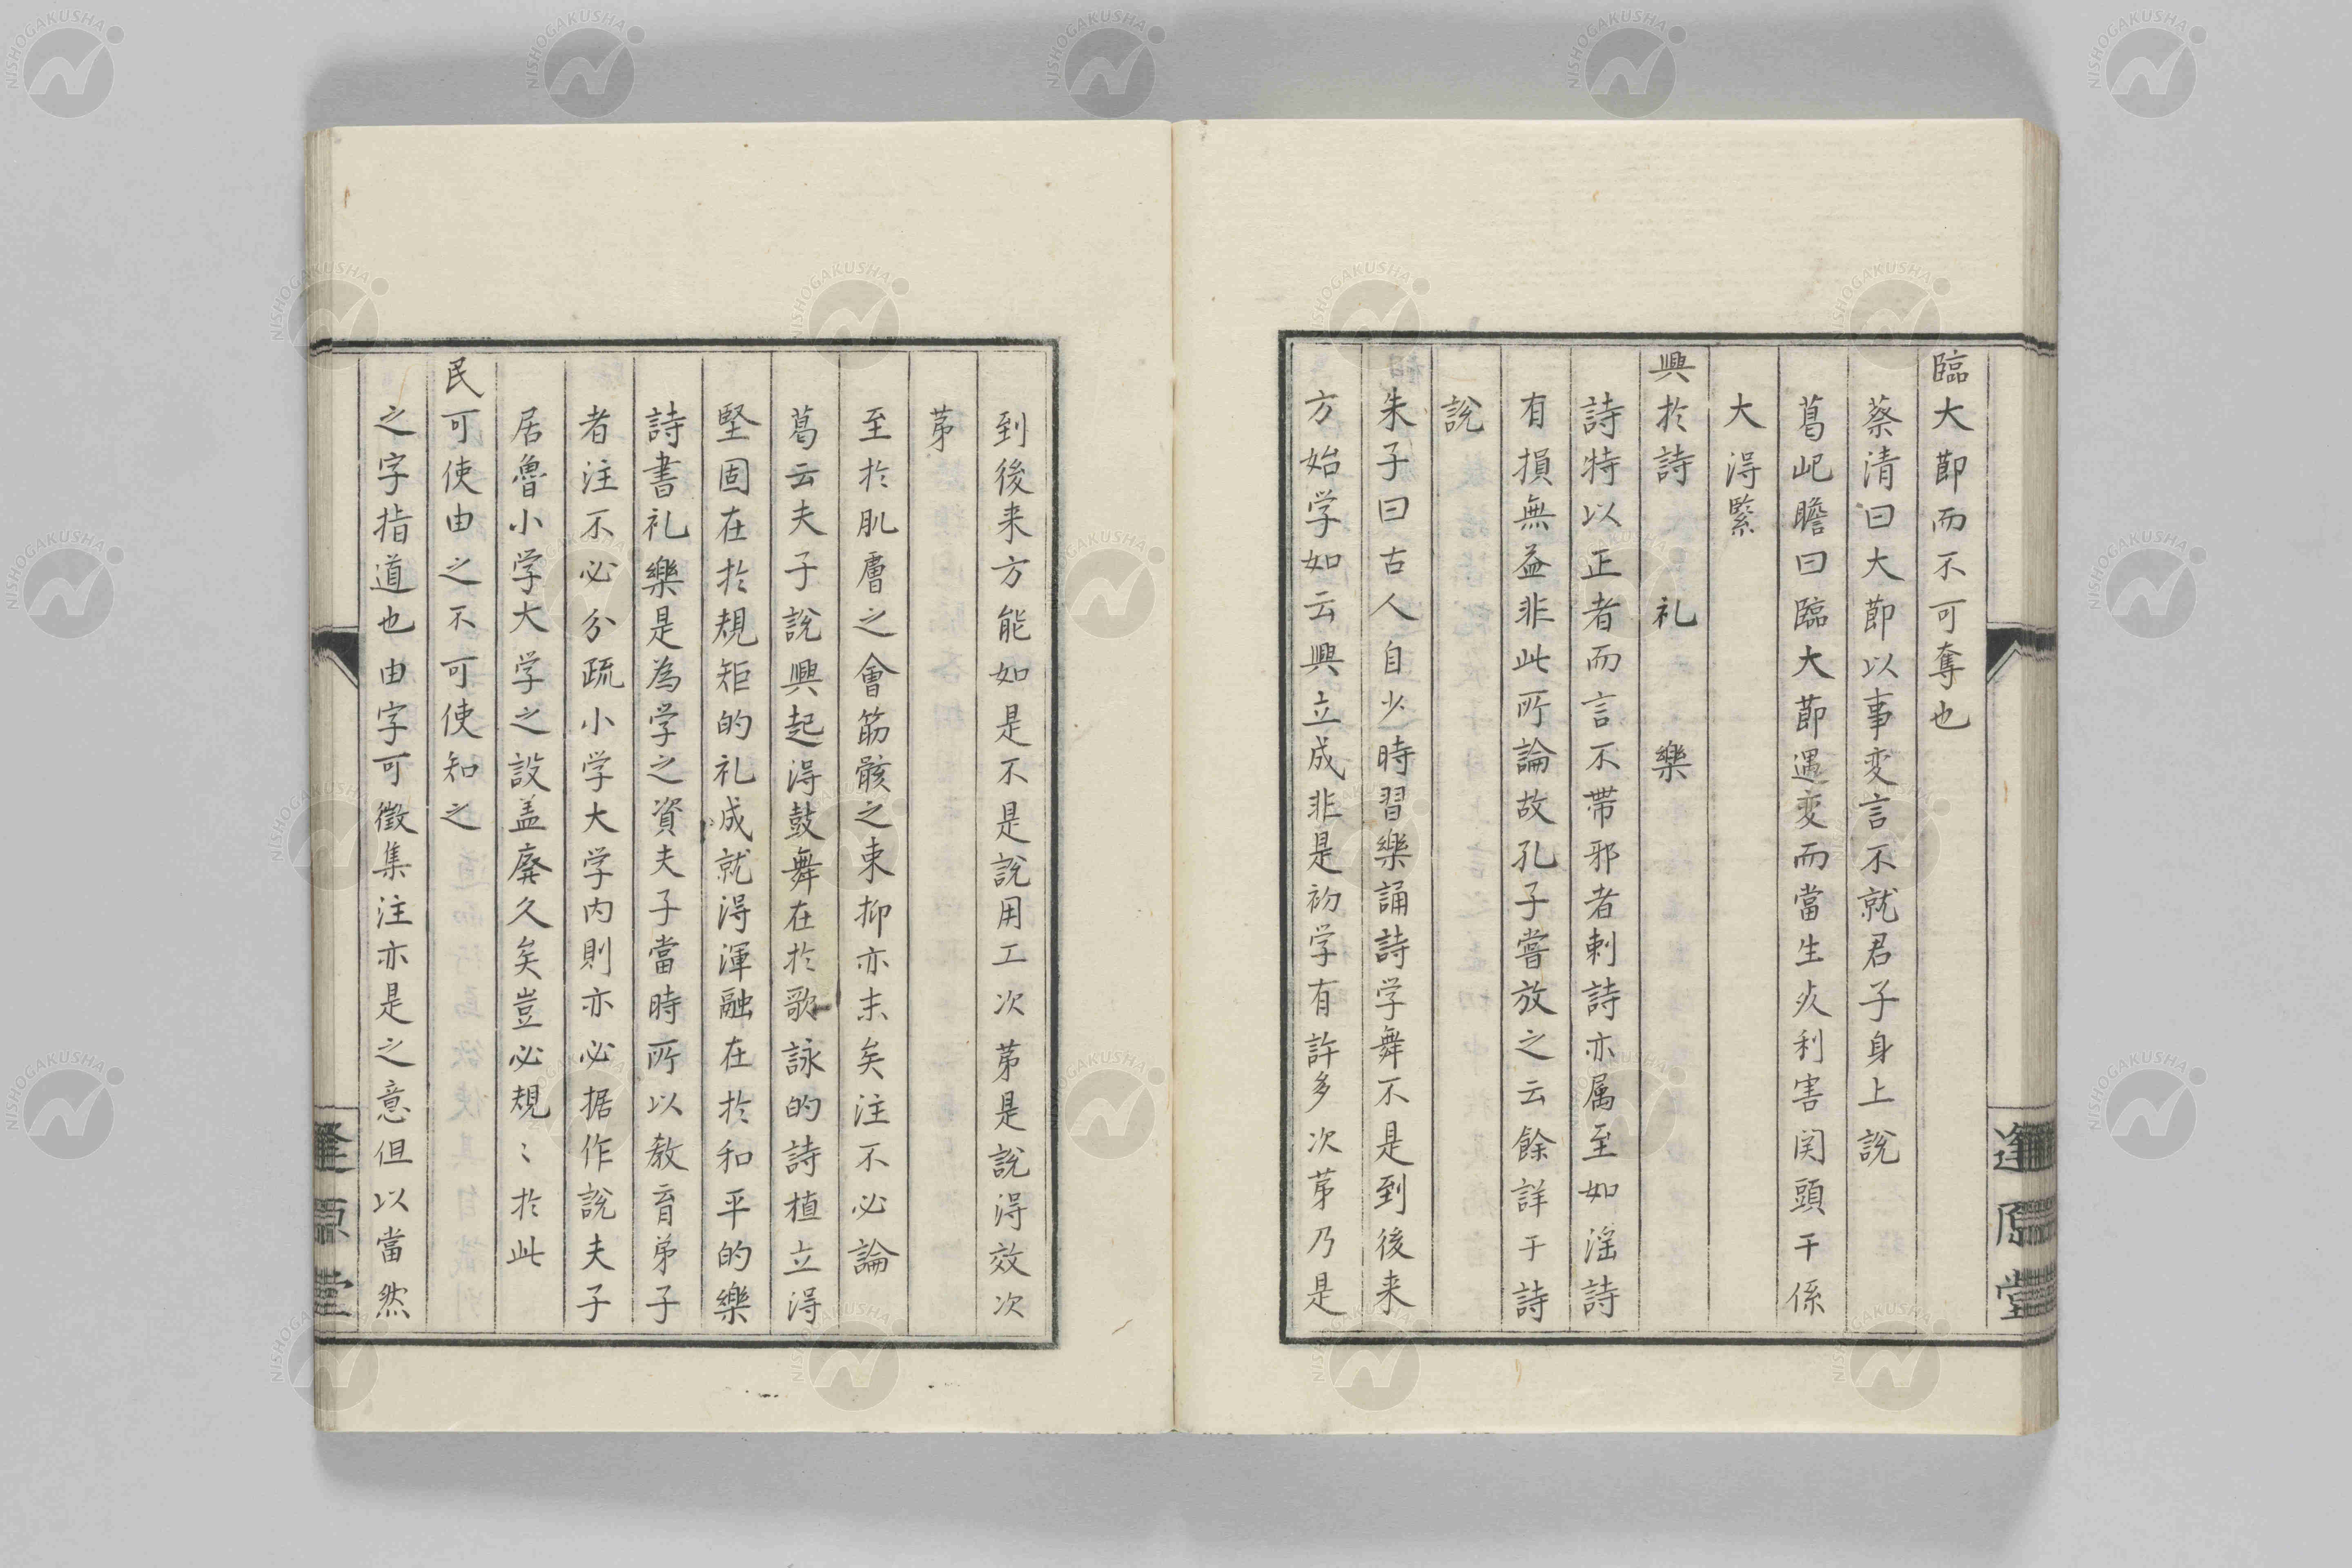 臨大節而不可奪也
蔡清曰大節以事変言不就君子身上説
葛屺瞻曰臨大節遇変而當生死利害関頭干係
大淂緊
興於詩 礼 樂
詩特以正者而言不帯邪者刺詩亦属至如淫詩
有損無益非此所論故孔子嘗放之云餘詳于詩
説
朱子曰古人自少時習樂誦詩学舞不是到後来
方始学如云興立成非是初学有許多次苐乃是
逢原堂
到後来方能如是不是説用工次苐是説淂效次
苐
至於肌膚之會筋骸之束抑亦末矣注不必論
葛云夫子説興起淂鼓舞在於歌詠的詩植立淂
堅固在於規矩的礼成就淂渾融在於和平的樂
詩書礼樂是為学之資夫子當時所以教育弟子
者注不必分疏小学大学内則亦必据作説夫子
居魯小学大学之設盖廃久矣豈必規〻於此
民可使由之不可使知之
之字指道也由字可徴集注亦是之意但以當然
逢原堂
NISHOGAKUSHA